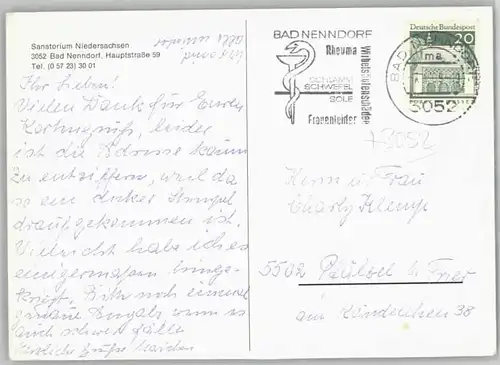 Sanatorium Niedersachsen
3052 Bad Nenndorf, Hauptstraße 59
Tel. (0 57 23) 30 01
Ihr Lieben!
Vielen Dank für Euren
Kartengruß, leider
ist die Adresse kaum
zu entziffern, weil da
so ein dicker Stempel
drauf gekommen ist.
Vielleicht habe ich es
einigermaßen hinge-
kriegt. Bitte noch einmal
genaue Angabe wenn es
auch schwer fällt
Herzliche Grüße
BAD NENNDORF
Rheuma
Wirbelsäulenschäden
SCHLAMM
SCHWEFEL
SOLE
Frauenleiden
Deutsche Bundespost
20
BAD NENNDORF
ma
3052
3052
Herrn u Frau
Charly Klemp
5502
Trier
38